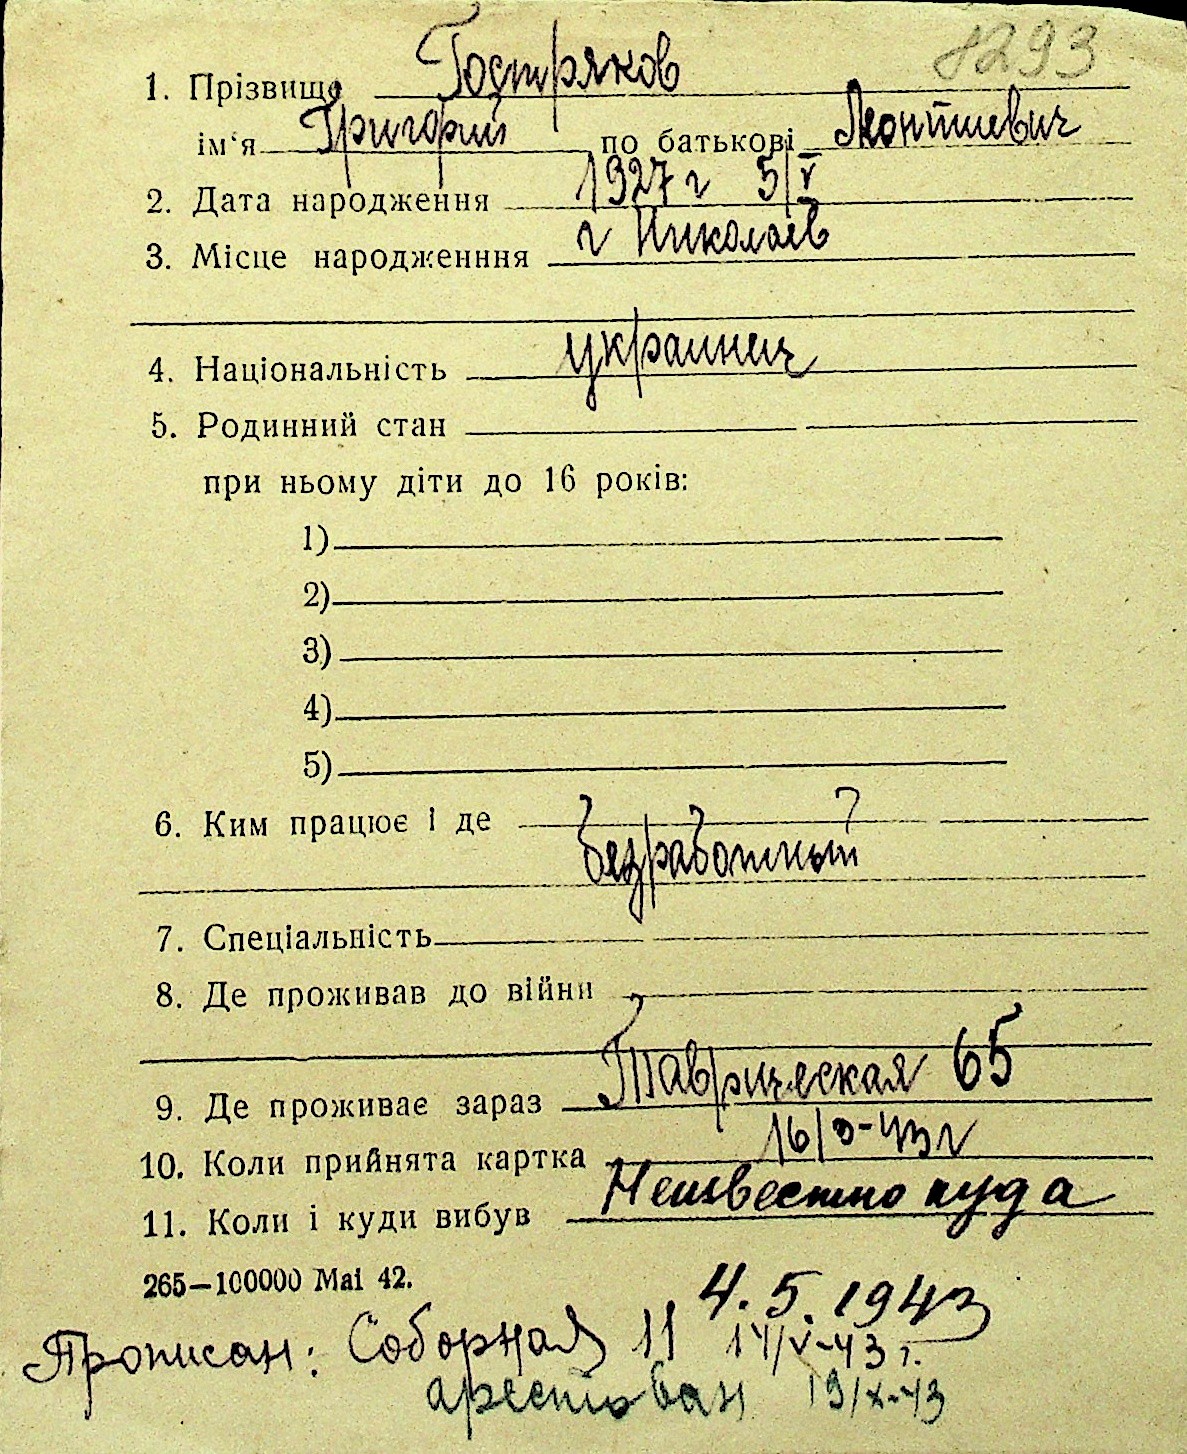 8293
1. Прізвище Гостряков
ім‘я Григорий по батькові Леонтиевич
2. Дата народження 1927 г 5/V
3. Місце народженння г Николаев
4. Національність украинец
5. Родинний стан
при ньому діти до 16 років:
1)
2)
3)
4)
5)
6. Ким працює і де
безработный
7. Спеціальність
8. Де проживав до війни
9. Де проживає зараз Таврическая 65
10. Коли прийнята картка 16/ -43 г
11. Коли і куди вибув Неизвестно куда
265—100000 Mai 42.
4. 5. 1943
Прописан: Соборная 11 14/V-43 г.
арестован 19/X-43